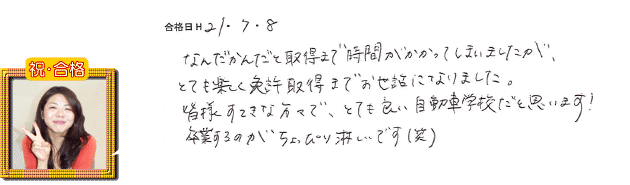 合格日H 21.7.8
祝・合格
なんだかんだと取得まで時間がかかってしまいましたが、
とても楽しく免許取得までお世話になりました。
皆様すてきな方々で、とても良い自動車学校だと思います!
卒業するのがちょっぴり淋しいです(笑)